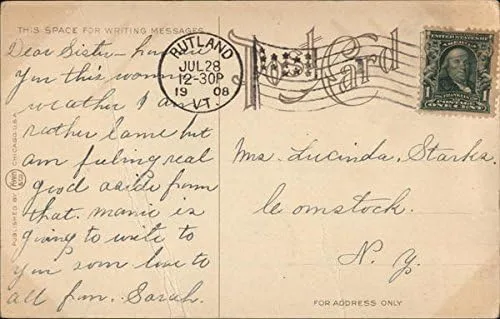 THIS SPACE FOR WRITING MESSAGES
Dear Sister - how are
you this warm
weather I am
rather lame but
am feeling real
good aside from
that. mamie is
going to write to
you soon love to
all from. Sarah.
RUTLAND
JUL 28
12-30P
1908
VT.
Post Card
UNITED STATES OF AMERICA
1
FRANKLIN
ONE CENT
Mrs. Lucinda, Starks.
Comstock.
N. Y.
FOR ADDRESS ONLY
PUBLISHED BY
CHICAGO U.S.A.